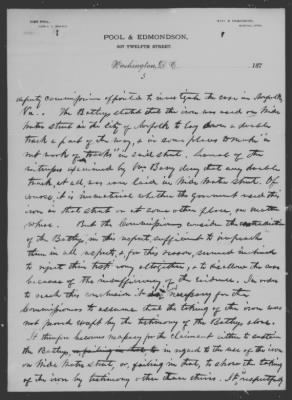 POOL & EDMONDSON,
607 TWELFTH STREET.
Washington, D. C. 187
3
deputy commissioner appointed to investigate the case in Norfolk,
Va. The Batleys stated that the iron was used on Wide
Water Street in the city of Norfolk to lay down a double
track a part of the way, & in some places to make "a
net work of tracks" in said street. Several of the
witnesses examined by Van Buren deny that any double
track, at all, was ever laid in Wide Water Street. Of
course, it is immaterial whether the Government used this
iron in that street or at some other place, no matter
where. But the Commissioners consider the contradiction
of the Batleys, in this respect, sufficient to impeach
them in all respects, & for this reason, seemed inclined
to reject their testimony altogether, & to disallow the case
because of the insufficiency of the evidence. In order
to reach this conclusion it was necessary for the
Commissioners to assume that the taking of the iron was
not proved except by the testimony of the Batleys alone.
It therefore became necessary for the claimant either to sustain
the Batleys, in regard to the use of the iron
on Wide Water Street, or, failing in that, to show the taking
of the iron by testimony other than theirs. It respectfully